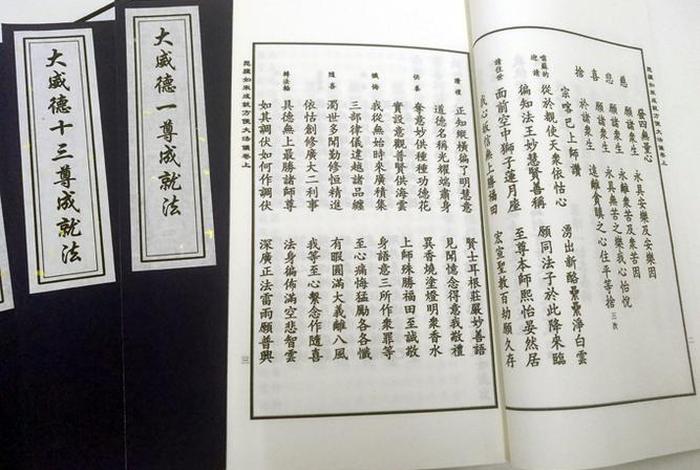 大威德十三尊成就法
大威德一尊成就法
毘盧如來成就方便大法儀卷上
發四無量心
慈 願諸衆生 永具安樂及安樂因
悲 願諸衆生 永離衆苦及衆苦因
喜 願諸衆生 永具無苦之樂我心怡悅
捨 於諸衆生 遠離貪瞋之心住平等捨 三次
宗喀巴上師讚
迎請 從於親使天衆依怙心 湧出新酪縈縈淨白雲
徧知法王妙慧賢善稱 願同法子於此降來臨
請住世 面前空中獅子蓮月座 至尊本師熙怡晏然居
我心敬信無上勝福田 宏宣聖教百劫願久存
讚禮 正知縱橫徧了明慧意 賢士耳根莊嚴妙善語
道德名稱光耀端肅身 見聞憶念得意我敬禮
供養 奪意妙供種種功德花 異香燒塗燈明衆香水
實設意觀普賢供海雲 上師殊勝福田至誠敬
懺悔 我從無始時來廣積集 身語意三所作衆罪等
三部律儀違越諸品纏 至心痛悔猛勵各各懺
隨喜 濁世多聞勤修恒精進 有暇圓滿大義離八風
依怙創修廣大二利事 我等至心繫念作隨喜
轉法輪 具德無上最勝諸師尊 法身徧佈滿空悲智雲
如其調伏如何作調伏 深廣正法雷雨願普興
毘盧如來成就方便大法儀卷上
三